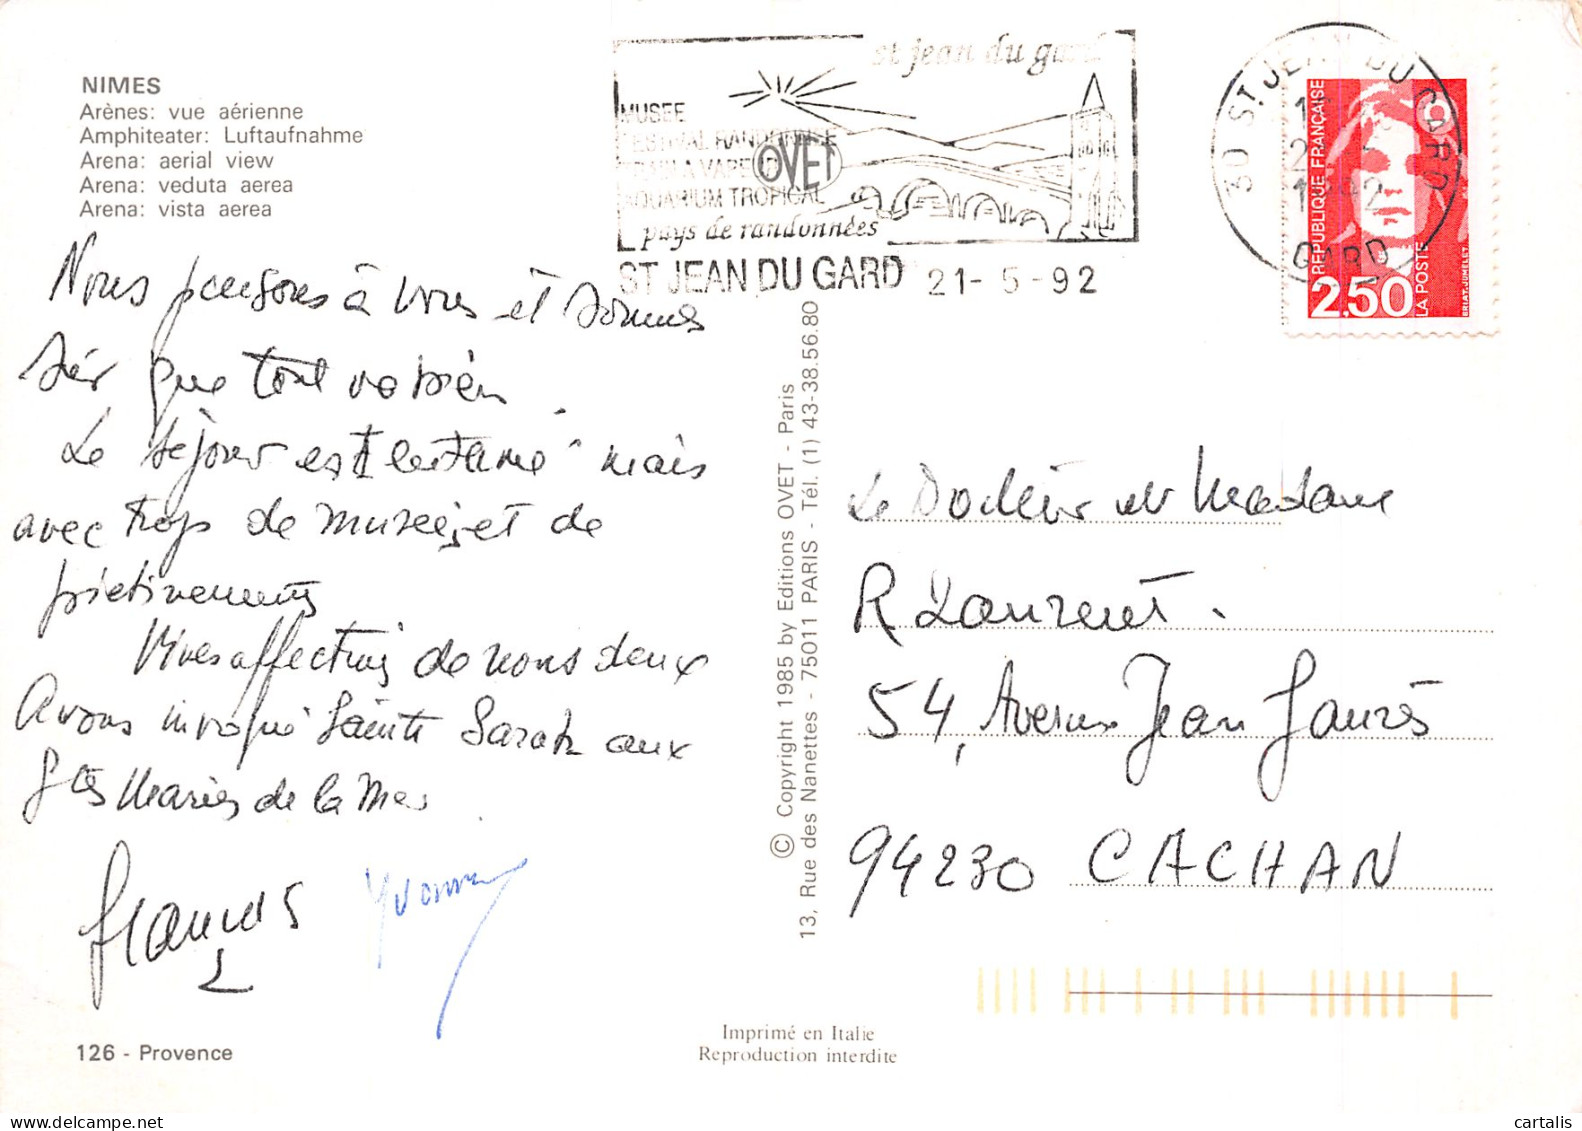 NIMES
Arènes: vue aérienne
Amphiteater: Luftaufnahme
Arena: aerial view
Arena: veduta aerea
Arena: vista aerea
st jean du gard
MUSEE
FESTIVAL RANDONNEE
AQUARIUM TROPICAL
OVET
pays de randonnées
ST JEAN DU GARD 21-5-92
30 ST JEAN DU GARD
GARD
RÉPUBLIQUE FRANÇAISE
2,50
LA POSTE
BRIAT-JUMELET
Nous pensons à vous et sommes
sûr que tout va bien.
Le séjour est
mais
avec trop de musées et de
piétinements
Vives affections de nous deux
Avons invoqué Sainte Sarah aux
Stes Maries de la Mer
François
Yvonne
© Copyright 1985 by Editions OVET - Paris
13, Rue des Nanettes - 75011 PARIS - Tél. (1) 43-38.56.80
Le Docteur et Madame
R Laurent.
54, Avenue Jean Jaurès
94230 CACHAN
126 - Provence
Imprimé en Italie
Reproduction interdite
cartalis
delcampe.net